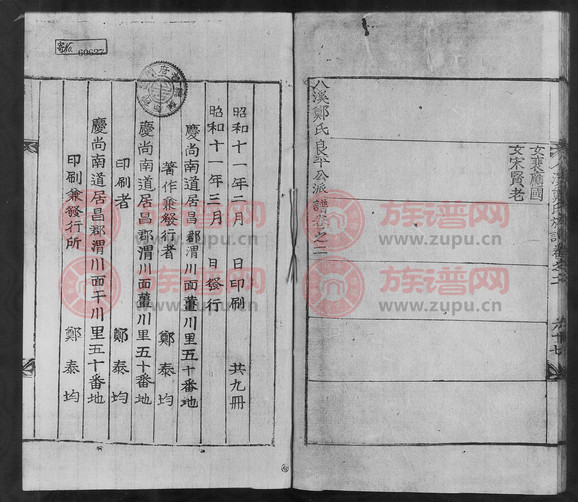 女裴應國
女宋賢老
八溪鄭氏良平公派譜卷之二
昭和十一年二月 日印刷 共九冊
昭和十一年三月 日發行
慶尚南道居昌郡渭川面薑川里五十番地
著作兼發行者 鄭泰均
慶尚南道居昌郡渭川面薑川里五十番地
印刷者 鄭泰均
慶尚南道居昌郡渭川面薑川里五十番地
印刷兼發行所 鄭泰均
60627
族谱网
www.zupu.cn
族谱网
www.zupu.cn
族谱网
www.zupu.cn
族谱网
www.zupu.cn